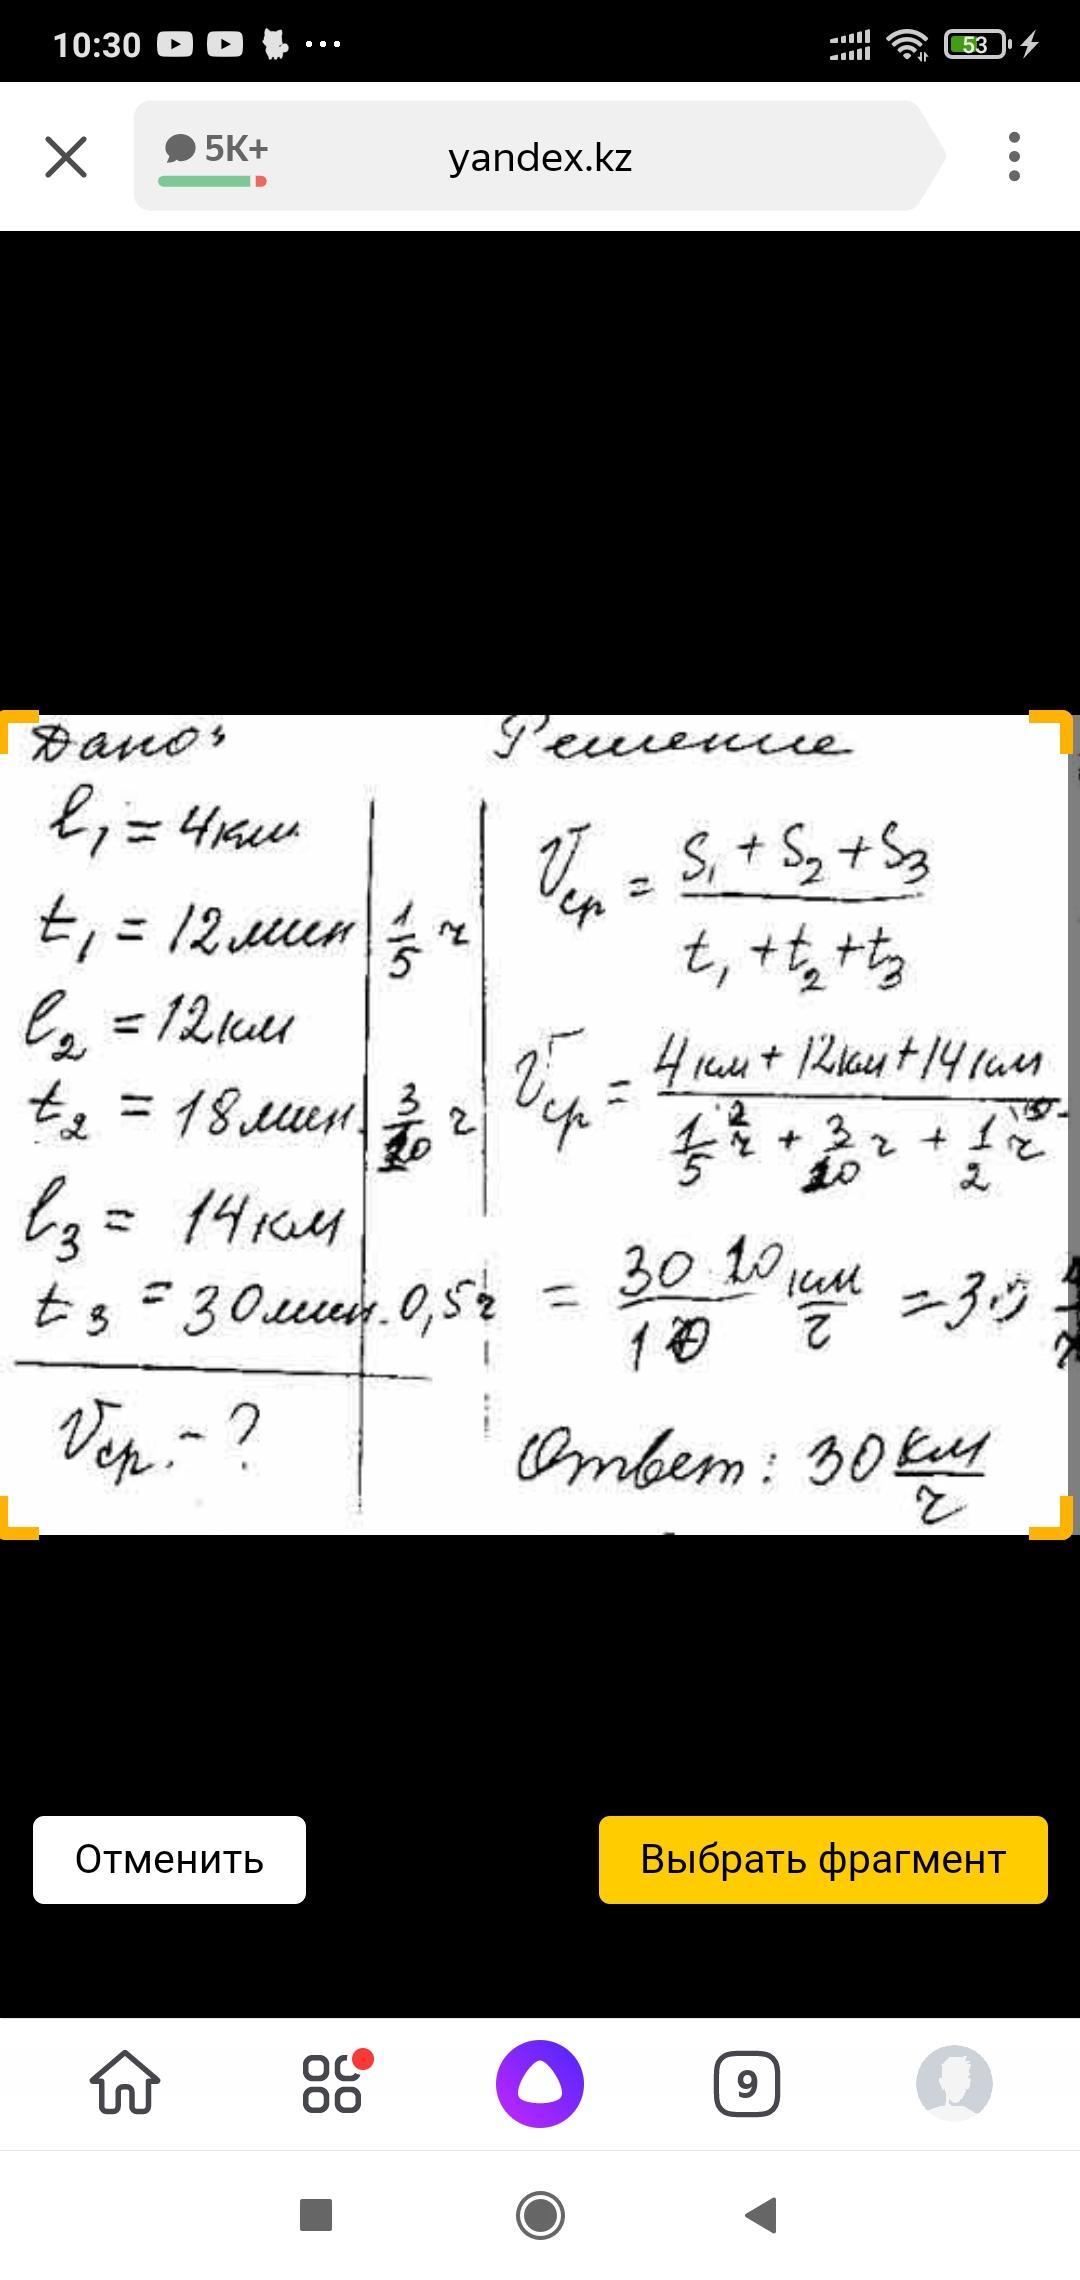 10:30 53
5K+ yandex.kz
Дано:
l₁ = 4км
t₁ = 12мин 1/5 ч
l₂ = 12км
t₂ = 18мин. 3/10 ч
l₃ = 14км
t₃ = 30мин. 0,5ч
Vср. - ?
Решение
Vср = S₁ + S₂ + S₃ / t₁ + t₂ + t₃
Vср = 4км + 12км + 14км / 1/5 ч + 3/10 ч + 1/2 ч
= 30 10 / 10 км/ч = 30
Ответ: 30 км/ч
Отменить Выбрать фрагмент
9